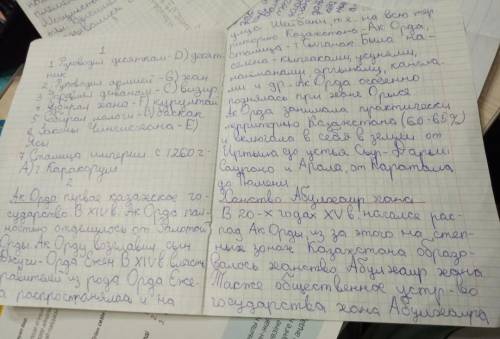 1
1 Руководил десятком - D) десят
ник
2. Руководил армией - G) хан
3 Управлял диваном - C) визир
4 Избирал хана - F) курултай
5 Собирал налоги - B) баскак
6 Законы Чингисхана - E)
Ясы
7 Столица империи с 1260 г -
A) г Каракорум
2
Ак Орда первое казахское го-
сударство. В XIV в. Ак Орда пол-
ностью отделилось от Золотой
Орды Ак Орду возглавил сын
Джучи - Орда Ежен. В XIV в власть
правители из рода Орда Еже-
на распространялась и на
улица Шайбани, т.к. на всю тер
риторию Казахстана - Ак Орда,
столица - г Сыганак. Была на-
селена - кыпчаками, уйсунями,
найманами, аргынами, канглы-
ми и др. Ак Орда особенно
поднялась при хане Орыса
Ак Орда занимала практически
территорию Казахстана (60-65%)
и включала в себя в земли от
Иртыша до устья Сыр-Дарьи
Саурана и Арала, от Каратала
до Тюмени
Ханство Абулхаир хана
В 20-х годах XV в. начался рас-
пад Ак Орды из за этого на степ-
ных зонах Казахстана образо-
валось ханство Абулхаир хана
Также общественное устур-во
государства хана Абулхаира